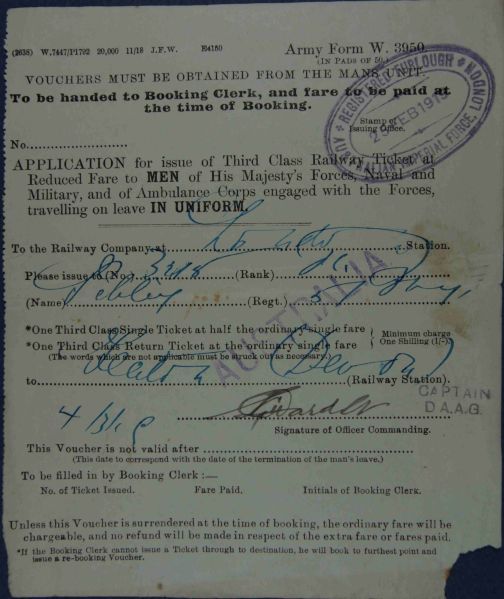 (2638) W.7447/P1792 20,000 11/18 J.F.W. E4150
Army Form W. 3950.
(IN PADS OF 50.)
VOUCHERS MUST BE OBTAINED FROM THE MAN'S UNIT.
To be handed to Booking Clerk, and fare to be paid at
the time of Booking.
REGISTERED FURLOUGH LONDON
FEB 1919
AUSTRALIAN IMPERIAL FORCE.
Stamp of
Issuing Office.
No.
APPLICATION for issue of Third Class Railway Ticket at
Reduced Fare to MEN of His Majesty's Forces, Naval and
Military, and of Ambulance Corps engaged with the Forces,
travelling on leave IN UNIFORM.
To the Railway Company at London Station.
Please issue to (No.) (Rank)
(Name) (Regt.)
AUSTRALIA
*One Third Class Single Ticket at half the ordinary single fare
*One Third Class Return Ticket at the ordinary single fare
Minimum charge
One Shilling (1/-).
(The words which are not applicable must be struck out as necessary.)
to Seaton (Devon) (Railway Station).
CAPTAIN
D.A.A.G.
4/3/19
Signature of Officer Commanding.
This Voucher is not valid after
(This date to correspond with the date of the termination of the man's leave.)
To be filled in by Booking Clerk:—
No. of Ticket Issued. Fare Paid. Initials of Booking Clerk.
Unless this Voucher is surrendered at the time of booking, the ordinary fare will be
chargeable, and no refund will be made in respect of the extra fare or fares paid.
*If the Booking Clerk cannot issue a Ticket through to destination, he will book to furthest point and
issue a re-booking Voucher.